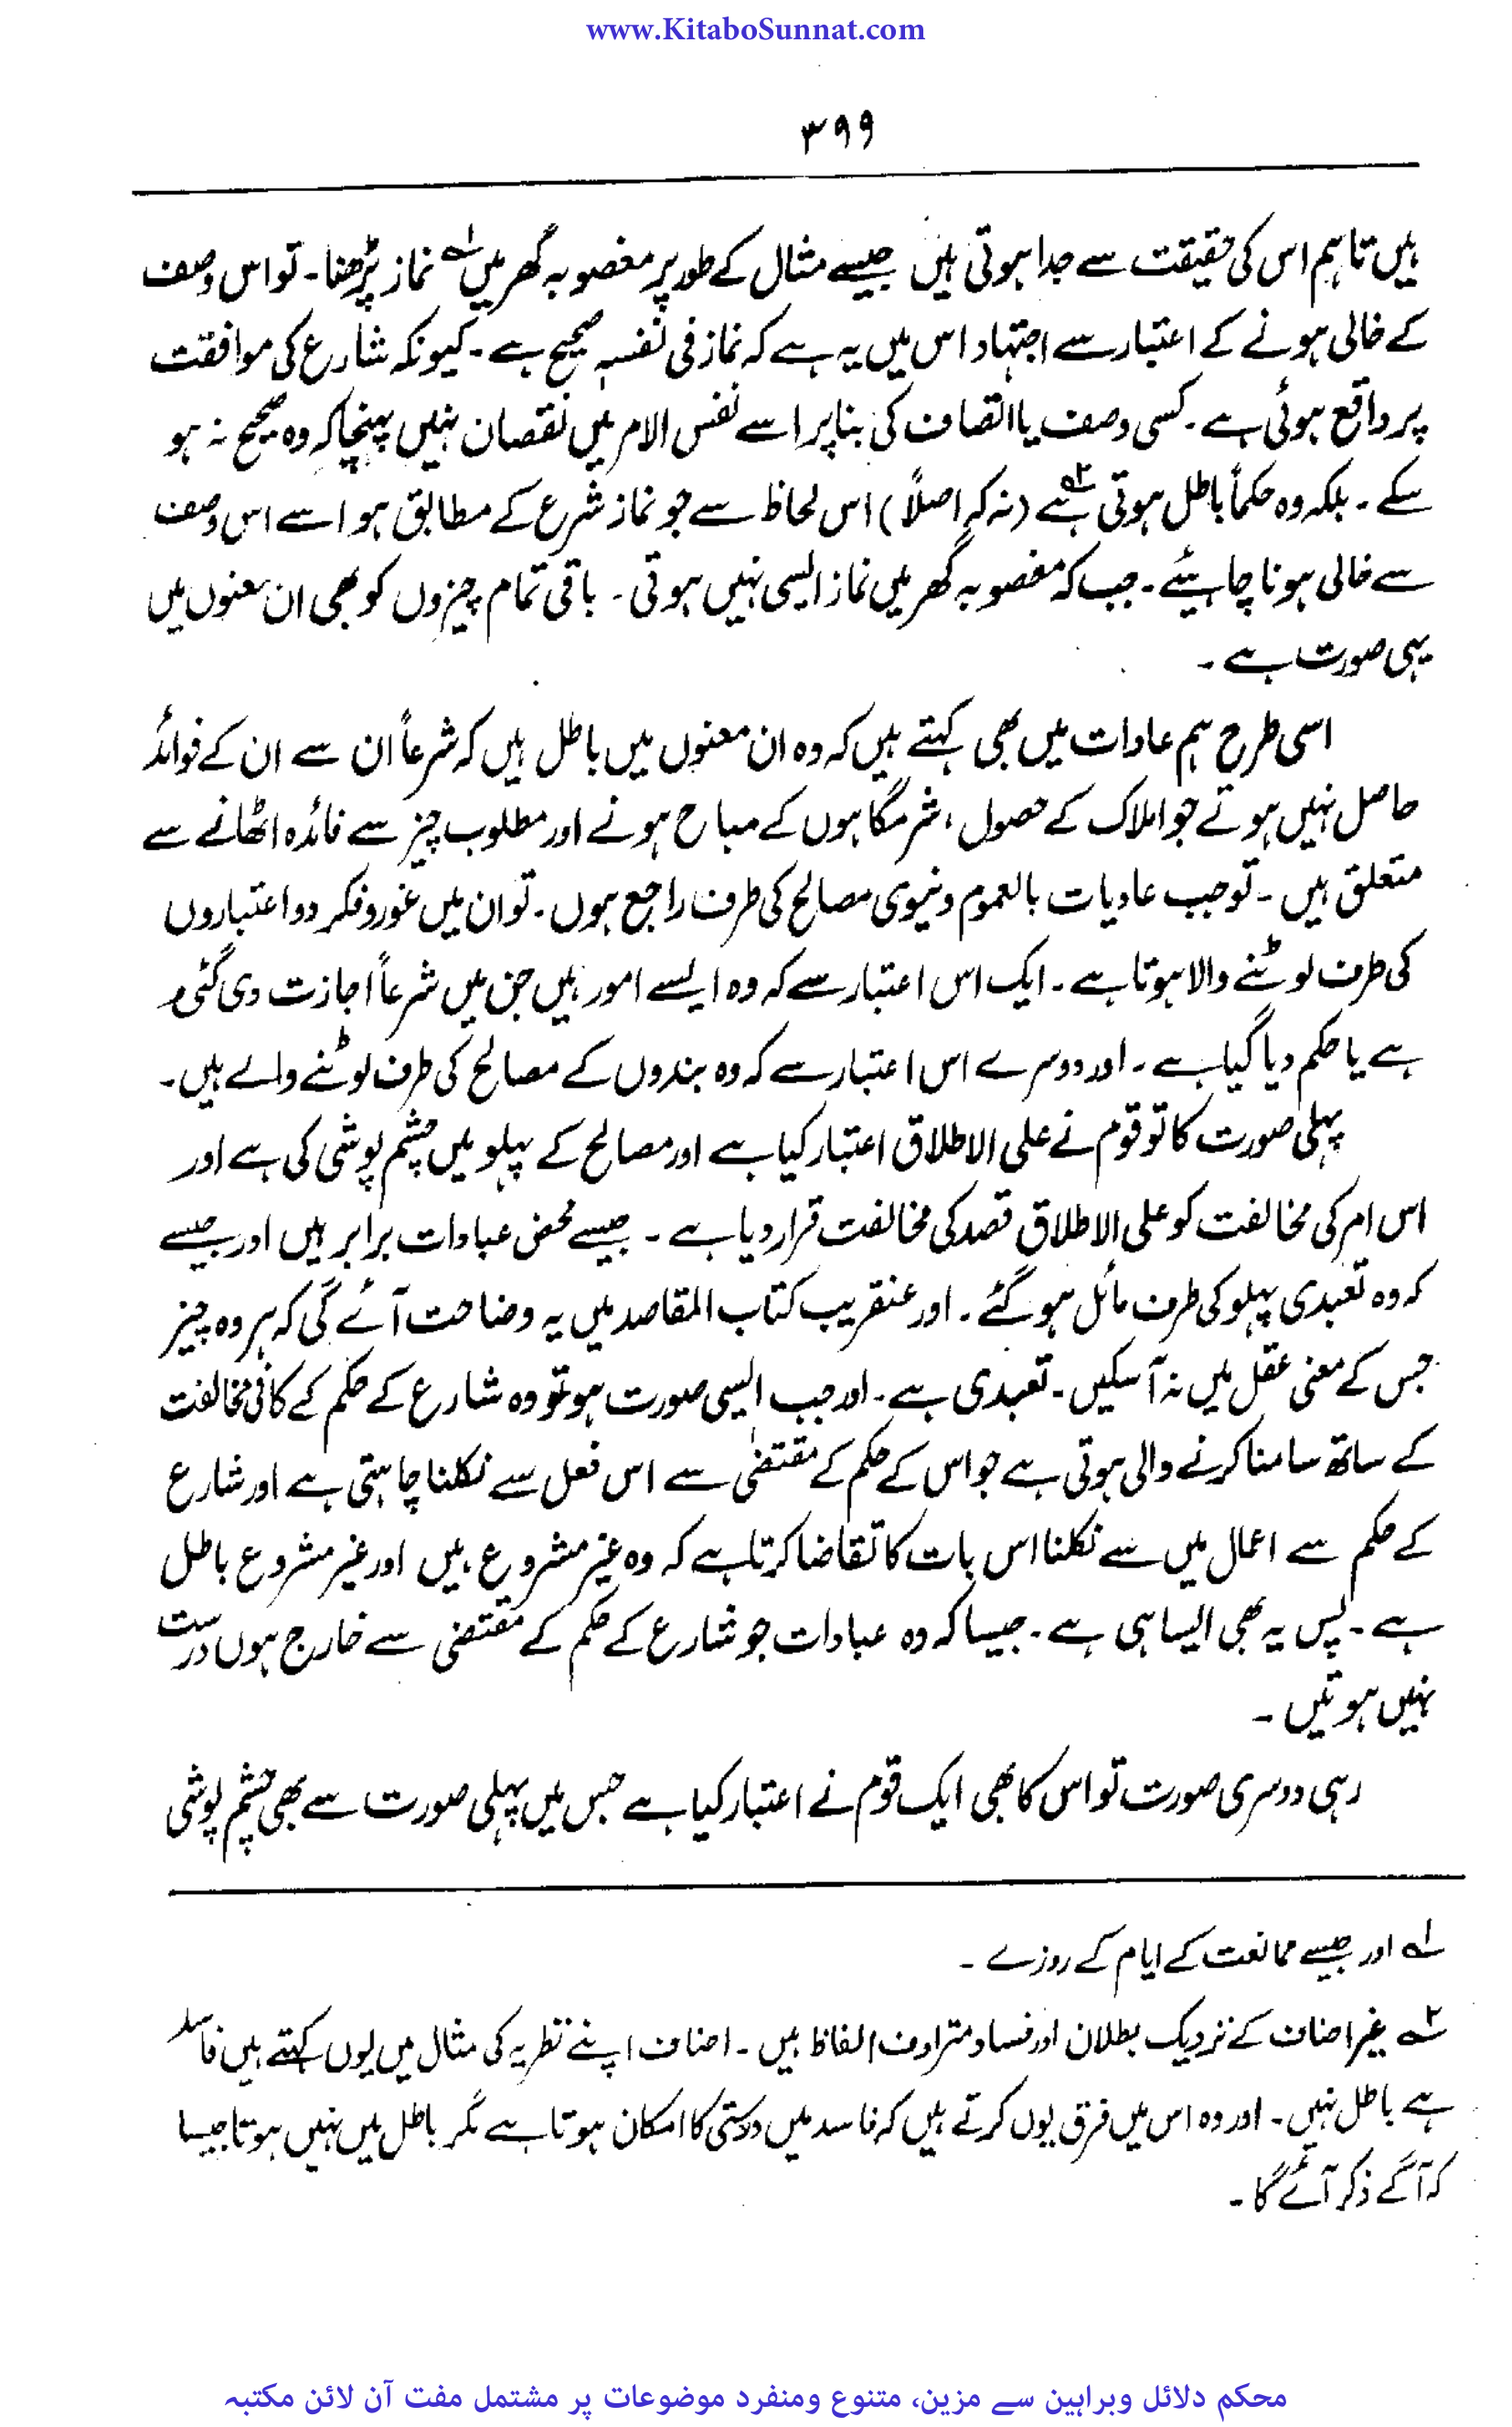 www.KitaboSunnat.com
۳۹۹
ہیں تاہم اس کی حقیقت سے جدا ہوتی ہیں جیسے مثال کے طور پر مغصوبہ گھر میں لہ نماز پڑھنا۔ تو اس وصف
کے خالی ہونے کے اعتبار سے اجتہاد اس میں یہ ہے کہ نماز فی نفسہٖ صحیح ہے۔ کیونکہ شارع کی موافقت
پر واقع ہوئی ہے۔ کسی وصف یا اتصاف کی بنا پر اسے نفس الامر میں نقصان نہیں پہنچا کہ وہ صحیح نہ ہو
سکے۔ بلکہ وہ حکماً باطل ہوتی ہے ۲ (نہ کہ اصلاً) اس لحاظ سے جو نماز شرع کے مطابق ہو اسے اس وصف
سے خالی ہونا چاہیئے۔ جب کہ مغصوبہ گھر میں نماز ایسی نہیں ہوتی۔ باقی تمام چیزوں کو بھی ان معنوں میں
یہی صورت ہے۔
اسی طرح ہم عادات میں بھی کہتے ہیں کہ وہ ان معنوں میں باطل ہیں کہ شرعاً ان سے ان کے فوائد
حاصل نہیں ہوتے جو املاک کے حصول، شرمگاہوں کے مباح ہونے اور مطلوب چیز سے فائدہ اٹھانے سے
متعلق ہیں۔ تو جب عادیات بالعموم دنیوی مصالح کی طرف راجع ہوں۔ تو ان میں غور و فکر دو اعتباروں
کی طرف لوٹنے والا ہوتا ہے۔ ایک اس اعتبار سے کہ وہ ایسے امور ہیں جن میں شرعاً اجازت دی گئی
ہے یا حکم دیا گیا ہے۔ اور دوسرے اس اعتبار سے کہ وہ بندوں کے مصالح کی طرف لوٹنے والے ہیں۔
پہلی صورت کا تو قوم نے علی الاطلاق اعتبار کیا ہے اور مصالح کے پہلو میں چشم پوشی کی ہے اور
اس امر کی مخالفت کو علی الاطلاق قصد کی مخالفت قرار دیا ہے۔ جیسے محض عبادات برابر ہیں اور جیسے
کہ وہ تعبدی پہلو کی طرف مائل ہو گئے۔ اور عنقریب کتاب المقاصد میں یہ وضاحت آئے گی کہ ہر وہ چیز
جس کے معنی عقل میں نہ آ سکیں۔ تعبدی ہے۔ اور جب ایسی صورت ہو تو وہ شارع کے حکم کے کافی مخالفت
کے ساتھ سامنا کرنے والی ہوتی ہے جو اس کے حکم کے مقتضیٰ سے اس فعل سے نکلنا چاہتی ہے اور شارع
کے حکم سے اعمال میں سے نکلنا اس بات کا تقاضا کرتا ہے کہ وہ غیر مشروع ہیں اور غیر مشروع باطل
ہے۔ پس یہ بھی ایسا ہی ہے۔ جیسا کہ وہ عبادات جو شارع کے حکم کے مقتضی سے خارج ہوں درست
نہیں ہوتیں۔
رہی دوسری صورت تو اس کا بھی ایک قوم نے اعتبار کیا ہے جس میں پہلی صورت سے بھی چشم پوشی
لہ اور جیسے ممانعت کے ایام کے روزے۔
۲ غیر احناف کے نزدیک بطلان اور فساد مترادف الفاظ ہیں۔ احناف اپنے نظریہ کی مثال میں یوں کہتے ہیں فاسد
ہے باطل نہیں۔ اور وہ اس میں فرق یوں کرتے ہیں کہ فاسد میں درستی کا امکان ہوتا ہے مگر باطل میں نہیں ہوتا جیسا
کہ آگے ذکر آئے گا۔
محکم دلائل وبراہین سے مزین، متنوع ومنفرد موضوعات پر مشتمل مفت آن لائن مکتبہ